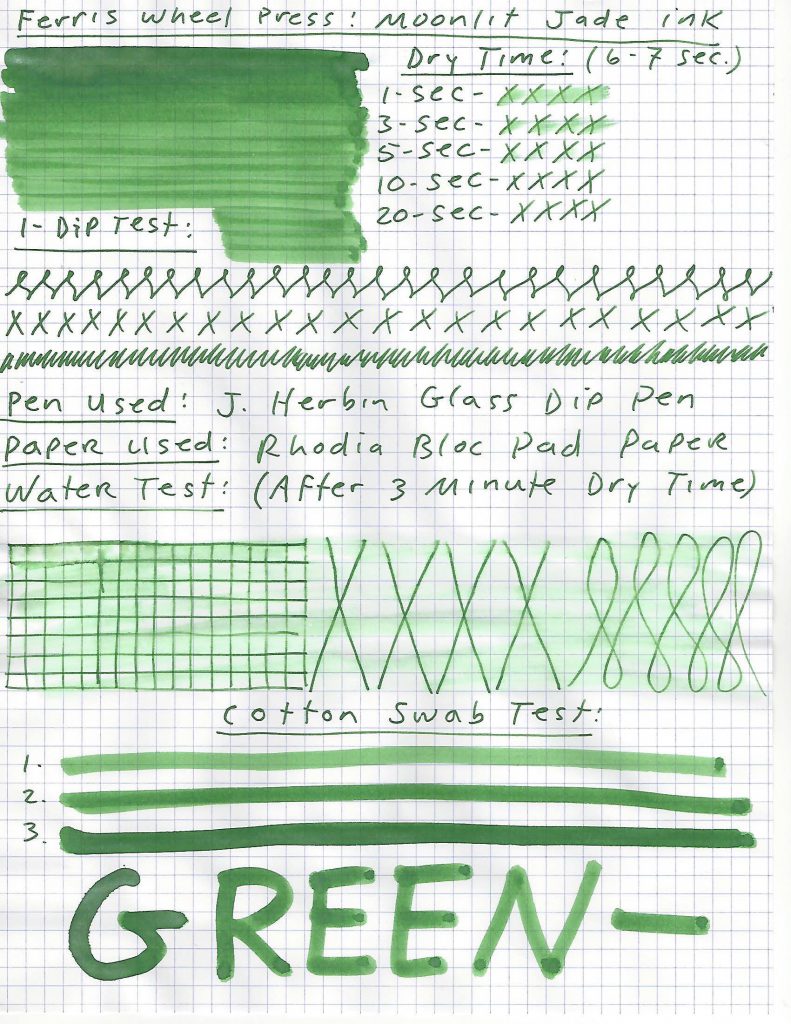 Ferris Wheel Press: Moonlit Jade ink
Dry Time: (6-7 sec.)
1-sec- X X X X
3-sec- X X X X
5-sec- X X X X
10-sec- X X X X
20-sec- X X X X
1-Dip Test:
X X X X X X X X X X X X X X X X X X X X X X X X
Pen Used: J. Herbin Glass Dip Pen
Paper Used: Rhodia Bloc Pad Paper
Water Test: (After 3 Minute Dry Time)
X X X X
Cotton Swab Test:
1.
2.
3.
GREEN-